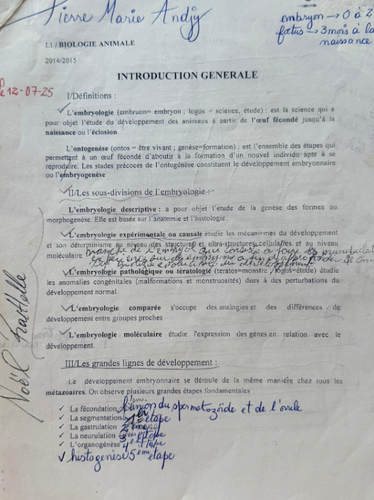 Pierre Marie Andjy
embryon → 0 à 2
fœtus → 3 mois à la
naissance
L1/ BIOLOGIE ANIMALE
2014/2015
le 12-07-25
INTRODUCTION GENERALE
I/Définitions :
L'embryologie (embruon= embryon ; logos = science, étude) : est la science qui a
pour objet l'étude du développement des animaux à partir de l'œuf fécondé jusqu'à la
naissance ou l'éclosion.
L'ontogenèse (ontos = être vivant ; genèse=formation) : est l'ensemble des étapes qui
permettent à un œuf fécondé d'aboutir à la formation d'un nouvel individu apte à se
reproduire. Les stades précoces de l'ontogénèse constituent le développement embryonnaire
ou l'embryogenèse
II/Les sous-divisions de l'embryologie :
L'embryologie descriptive : a pour objet l'étude de la genèse des formes ou
morphogenèse. Elle est basée sur l'anatomie et l'histologie.
L'embryologie expérimentale ou causale étudie les mécanismes du développement
et son déterminisme au niveau des structures, ultra-structures, cellulaires, et au niveau
moléculaire
L'embryologie pathologique ou tératologie (teratos=monstre ; logos=étude) étudie
les anomalies congénitales (malformations et monstruosités) dues à des perturbations du
développement normal.
L'embryologie comparée s'occupe des analogies et des différences de
développement entre groupes proches
L'embryologie moléculaire étudie l'expression des gènes en relation avec le
développement.
III/Les grandes lignes de développement :
La développement embryonnaire se déroule de la même manière chez tous les
métazoaires. On observe plusieurs grandes étapes fondamentales
✓ La fécondation l'union du spermatozoïde et de l'ovule
✓ La segmentation 1ère étape
✓ La gastrulation 2ème
✓ La neurulation étape
✓ L'organogénèse 4ème étape
✓ histogenèse 5ème étape
Noël